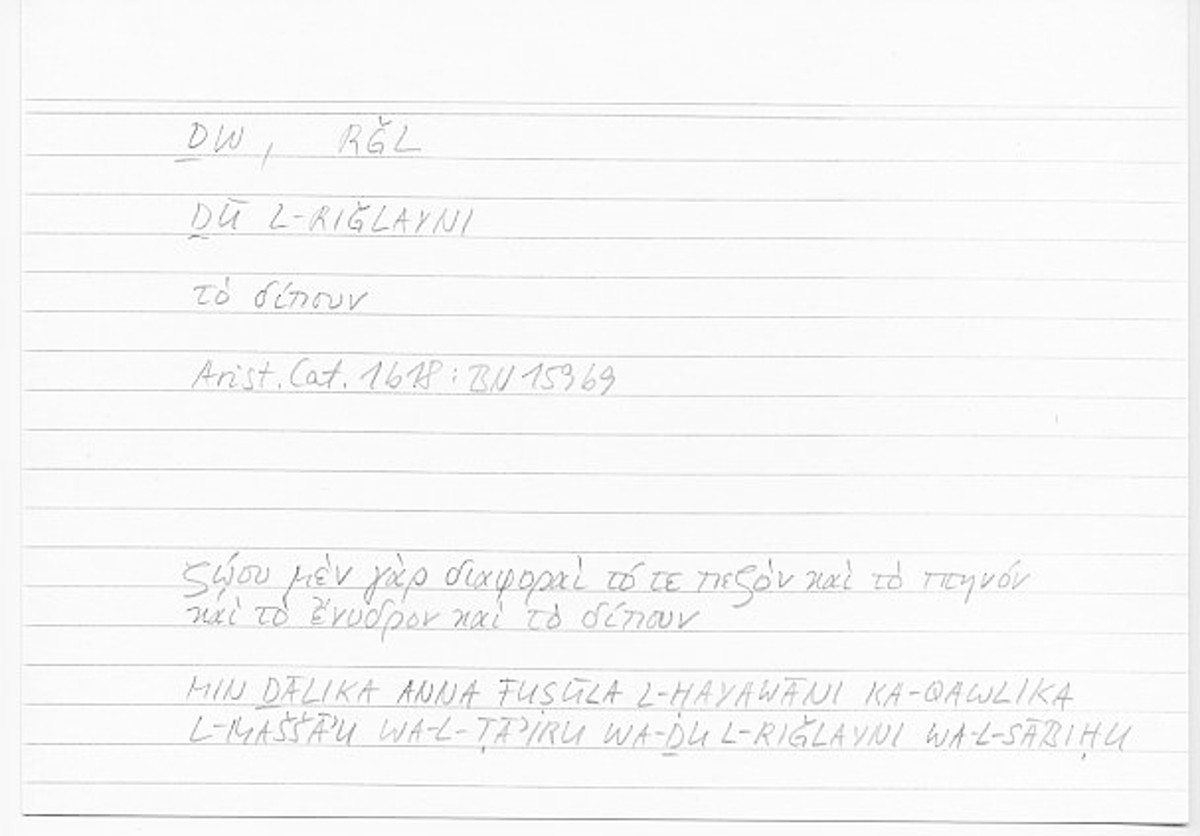 ḎW, RǦL
ḎŪ L-RIǦLAYNI
τὸ δίπουν
Arist. Cat. 1b18 : BN 159b9
ζῴου μὲν γὰρ διαφοραὶ τό τε πεζὸν καὶ τὸ πτηνόν
καὶ τὸ ἔνυδρον καὶ τὸ δίπουν
MIN ḎĀLIKA ANNA FUṢŪLA L-ḤAYAWĀNI KA-QAWLIKA
L-MAŠŠĀʾU WA-L-ṬĀʾIRU WA-ḎU L-RIǦLAYNI WA-L-SĀBIḤU